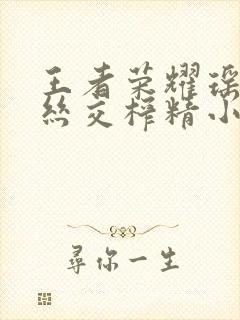 王者荣耀瑶
丝交榨精小
尋你一生